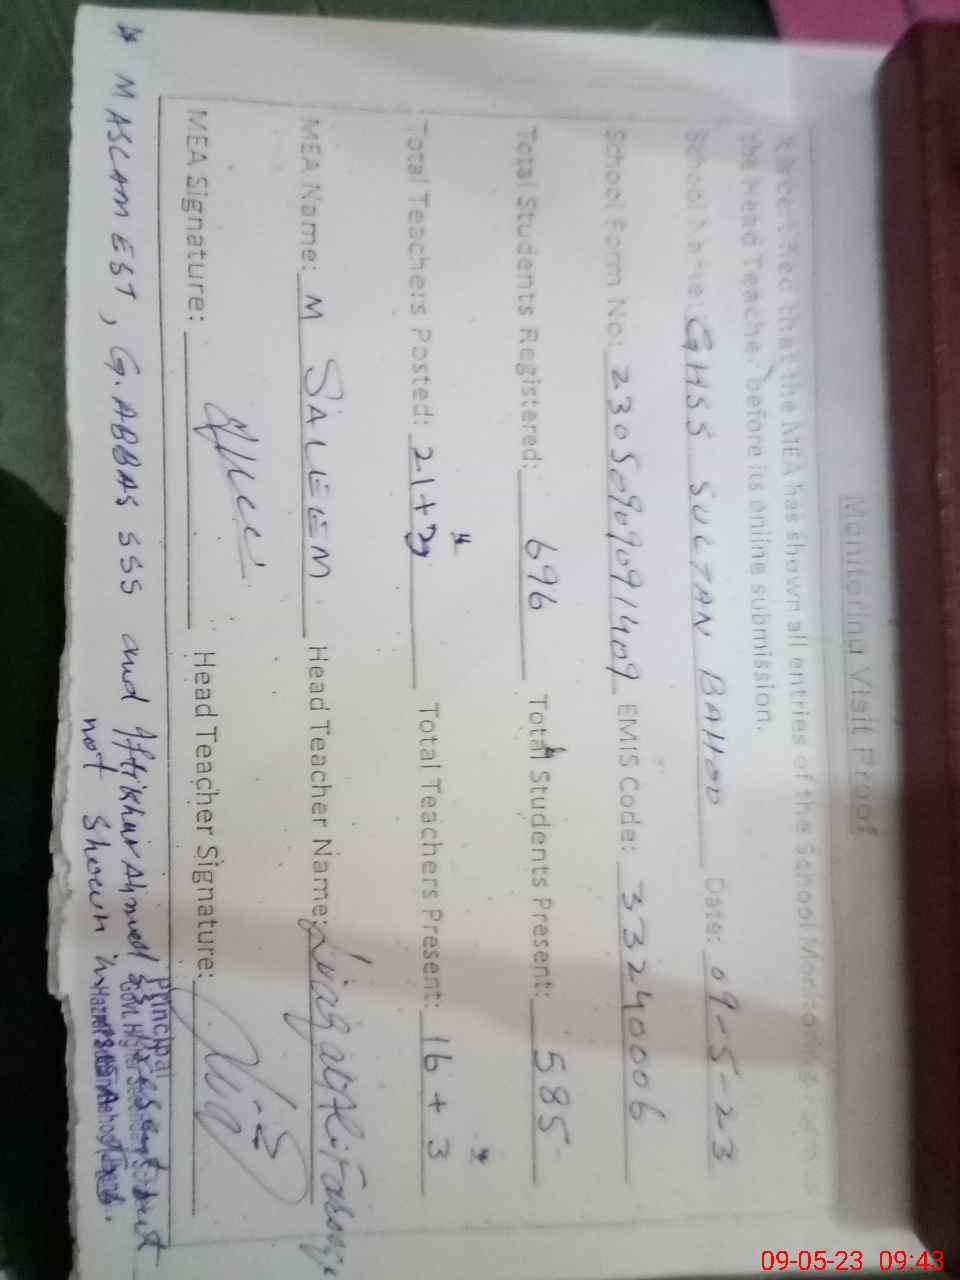 Monitoring Visit Proof
It is certified that the MEA has shown all entries of the School Monitoring
the Head Teacher before its online submission.
School Name: GHSS SULTAN BAHOO Date: 09-5-23
School Form No: 23050909091409 EMIS Code: 33240006
Total Students Registered: 696 Total Students Present: 585
Total Teachers Posted: 21+ Total Teachers Present: 16+3
MEA Name: M SALEEM Head Teacher Name: Liaqat Ali
MEA Signature: Head Teacher Signature:
Principal
* M ASLAM EST, G. ABBAS SSS and Iftikhar Ahmed present but
not shown in
09-05-23 09:43